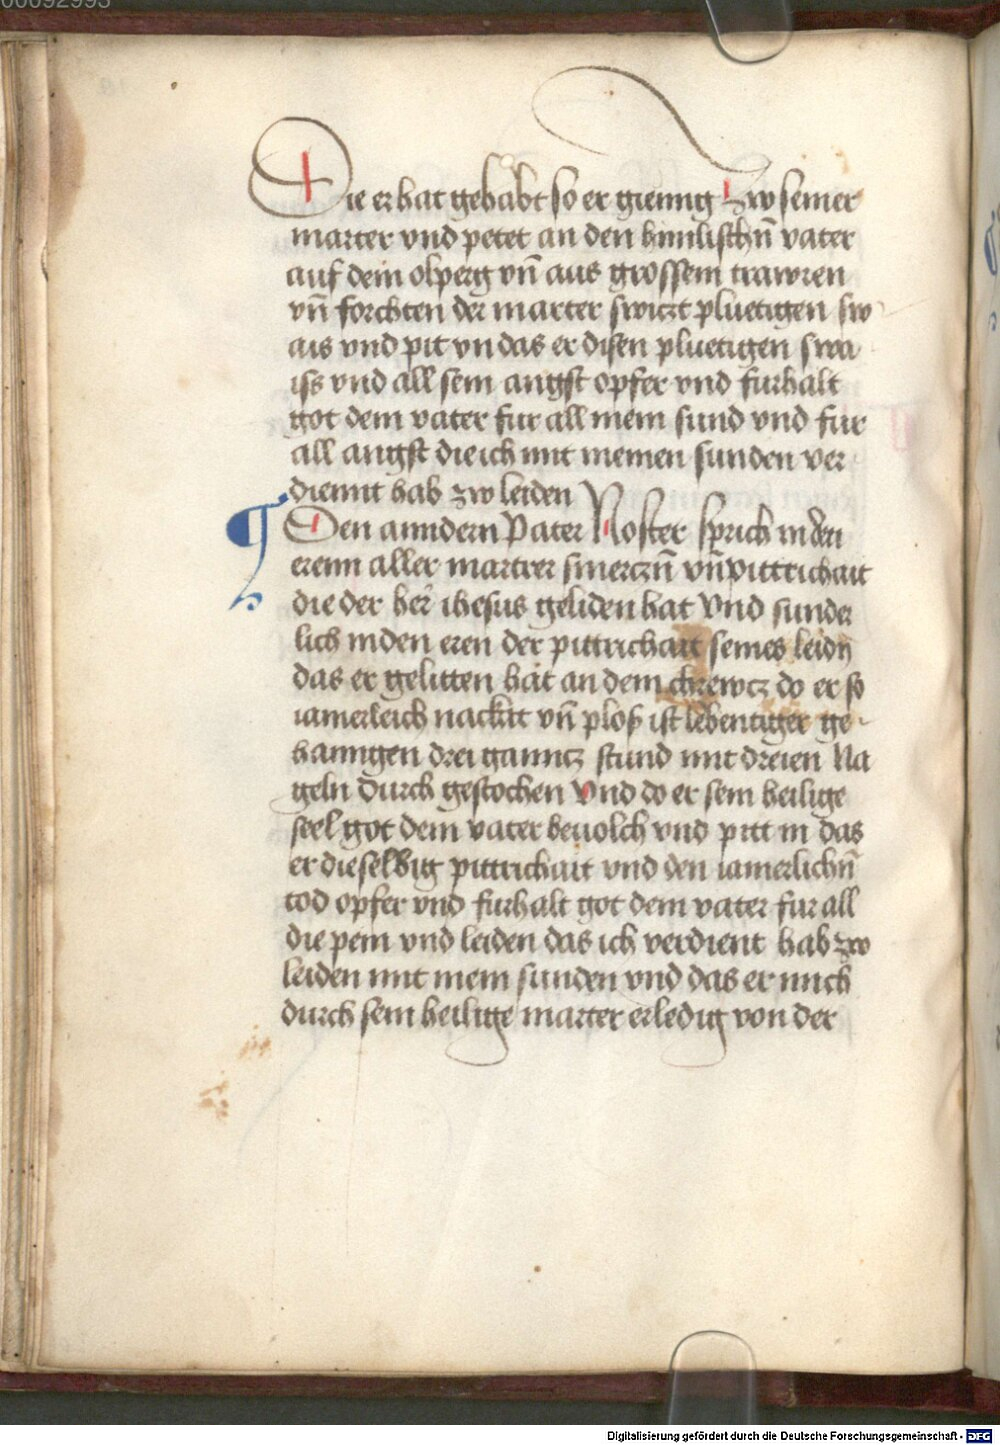 00092993
Die er hat gehabt so er gienng zw seiner
marter vnd petet an den himlischn̄ vater
auf dem olperg vn̄ aus grossem trawren
vn̄ forchten der marter swiczt pluetigen sw
ais vnd pit vn das er disen pluetigen swa
iss vnd all sein angst opfer vnd furhalt
got dem vater fur all mein sund vnd fur
all angst die ich mit meinen sunden ver
diennt hab zw leiden
Den anndern Pater Noster sprich in den
erenn aller martrer smerczn̄ vn̄ pittrichait
die der her̄ ihesus geliden hat Vnd sunder
lich inden eren der pittrichait seines leidn̄
das er gelitten hat an dem chrewcz do er so
iamerleich nackat vn̄ plos ist lebentiger ge
hanngen drei ganncz stund mit dreien Na
geln durch gestochen Vnd do er sein heilige
seel got dem vater beuolch vnd pitt in das
er dieselbig pittrichait vnd den iamerlichn̄
tod opfer vnd furhalt got dem vater fur all
die pein vnd leiden das ich verdient hab zw
leiden mit mein sunden vnd das er mich
durch sein heilige marter erledig von der
Digitalisierung gefördert durch die Deutsche Forschungsgemeinschaft - DFG